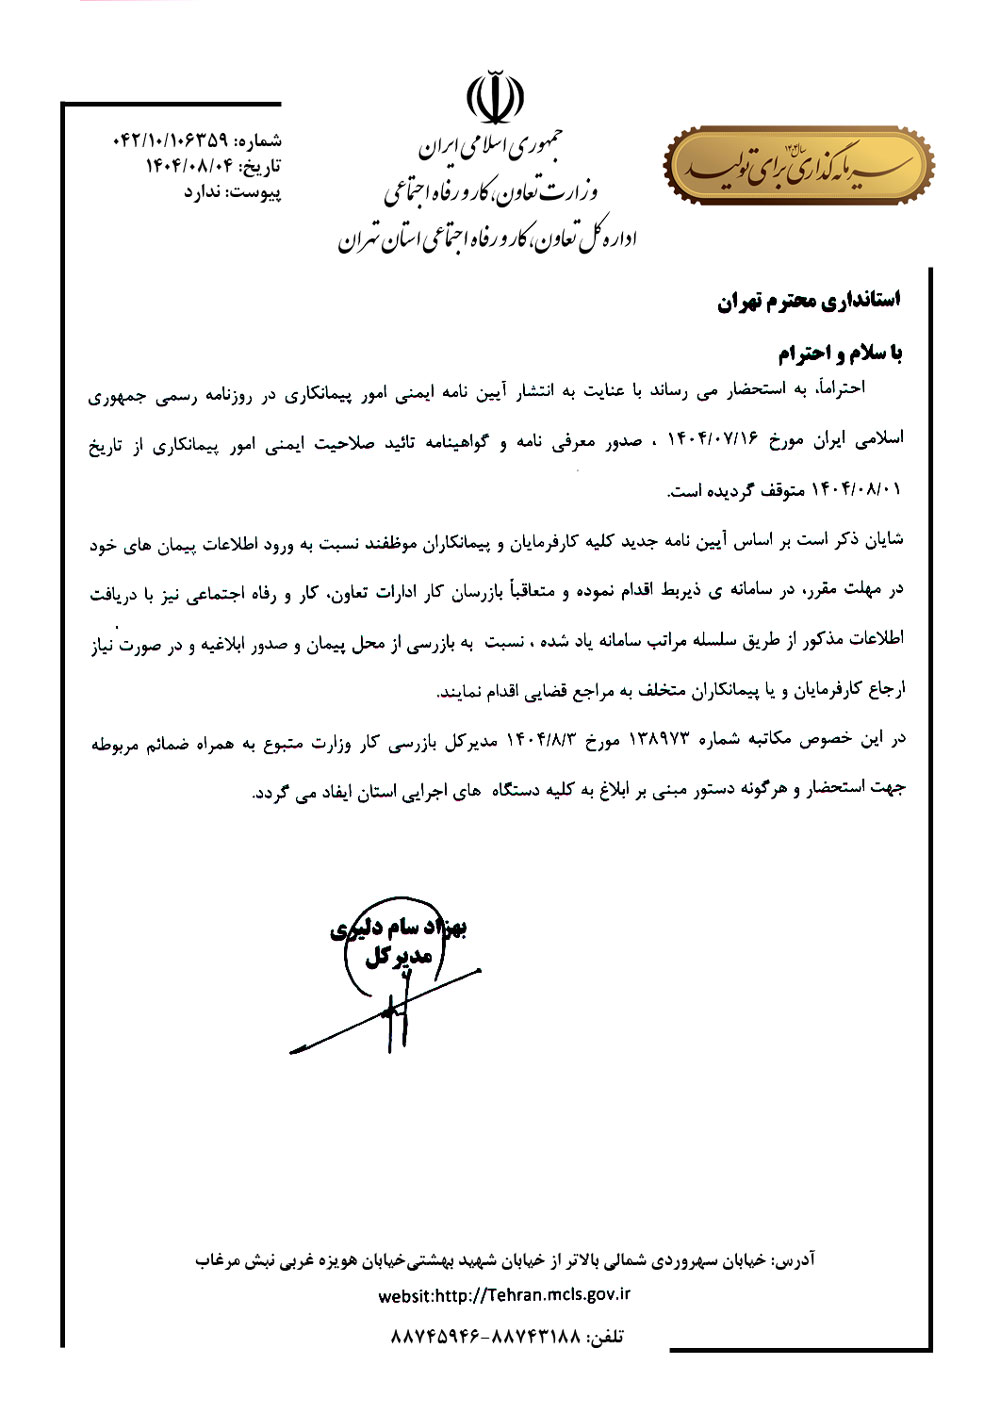 شماره: ۰۴۲/۱۰/۱۰۶۳۵۹
تاریخ: ۱۴۰۴/۰۸/۰۴
پیوست: ندارد
جمهوری اسلامی ایران
وزارت تعاون، کار و رفاه اجتماعی
اداره کل تعاون، کار و رفاه اجتماعی استان تهران
سال ۱۴۰۴
سرمایه‌گذاری برای تولید
استانداری محترم تهران
با سلام و احترام
احتراماً، به استحضار می رساند با عنایت به انتشار آیین نامه ایمنی امور پیمانکاری در روزنامه رسمی جمهوری
اسلامی ایران مورخ ۱۴۰۴/۰۷/۱۶ ، صدور معرفی نامه و گواهینامه تائید صلاحیت ایمنی امور پیمانکاری از تاریخ
۱۴۰۴/۰۸/۰۱ متوقف گردیده است.
شایان ذکر است بر اساس آیین نامه جدید کلیه کارفرمایان و پیمانکاران موظفند نسبت به ورود اطلاعات پیمان های خود
در مهلت مقرر، در سامانه ی ذیربط اقدام نموده و متعاقباً بازرسان کار ادارات تعاون، کار و رفاه اجتماعی نیز با دریافت
اطلاعات مذکور از طریق سلسله مراتب سامانه یاد شده ، نسبت به بازرسی از محل پیمان و صدور ابلاغیه و در صورت نیاز
ارجاع کارفرمایان و یا پیمانکاران متخلف به مراجع قضایی اقدام نمایند.
در این خصوص مکاتبه شماره ۱۳۸۹۷۳ مورخ ۱۴۰۴/۸/۳ مدیرکل بازرسی کار وزارت متبوع به همراه ضمائم مربوطه
جهت استحضار و هرگونه دستور مبنی بر ابلاغ به کلیه دستگاه های اجرایی استان ایفاد می گردد.
بهزاد سام دلیری
مدیرکل
آدرس: خیابان سهروردی شمالی بالاتر از خیابان شهید بهشتی‌خیابان هویزه غربی نبش مرغاب
websit:http://Tehran.mcls.gov.ir
تلفن: ۸۸۷۴۳۱۸۸-۸۸۷۴۵۹۴۶